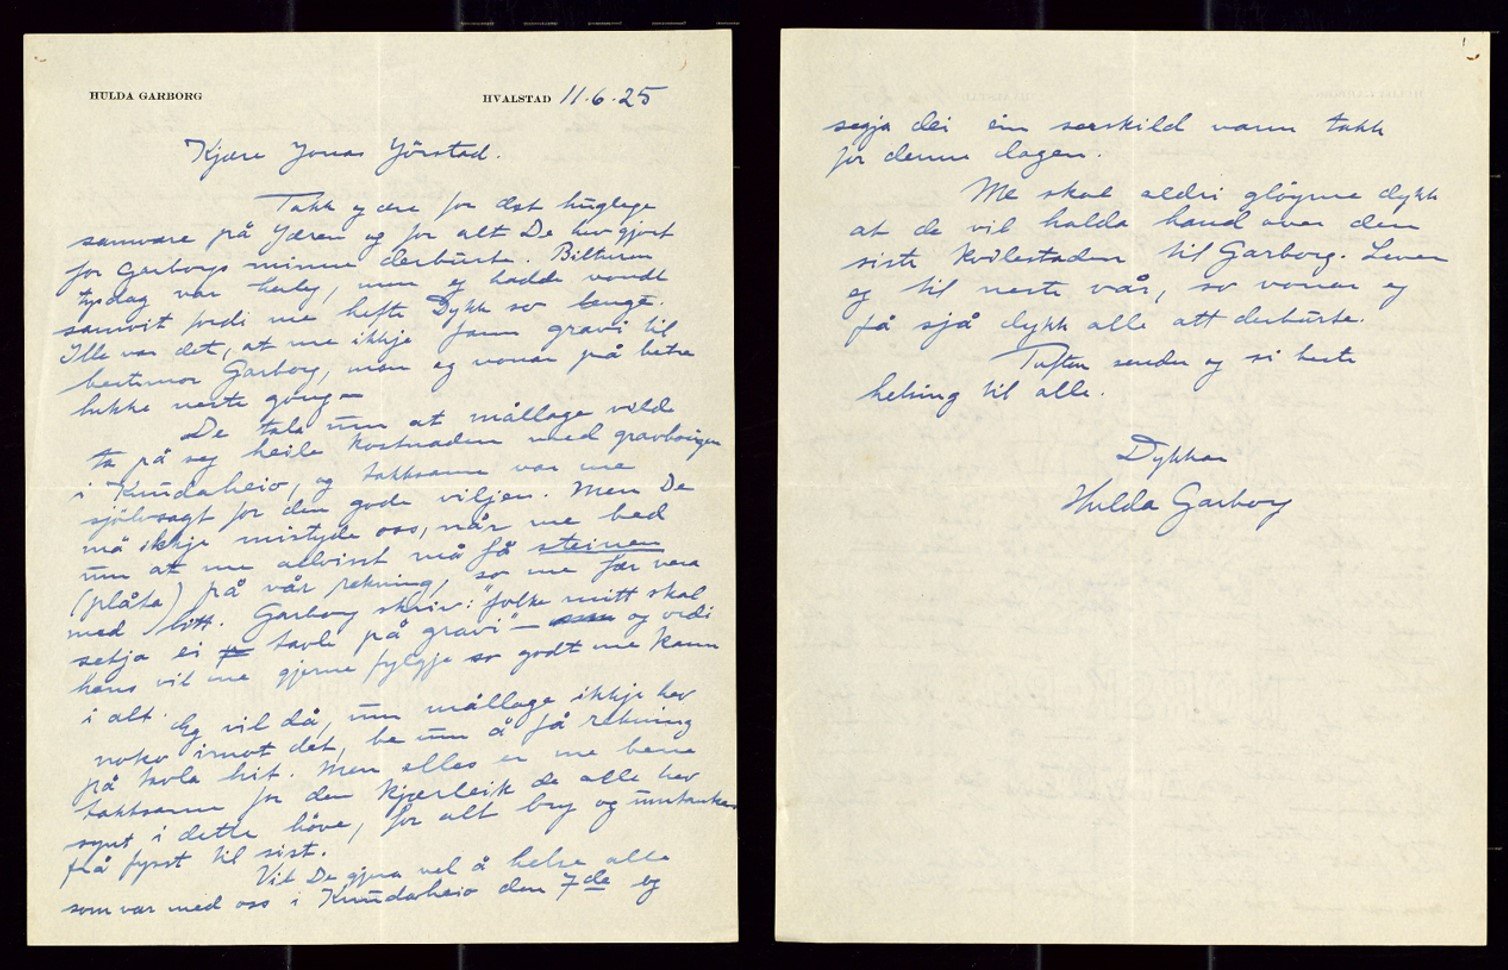 HULDA GARBORG
HVALSTAD 11.6.25
Kjære Jonas Jörstad.
Takk og ære for det huglege
samvære på Jæren og for alt De hev gjort
for Garborgs minne derburte. Bilturen
tysdag var herleg, men eg hadde vondt
samvit fordi me hefte Dykk so lenge.
Ille var det, at me ikkje fann gravi til
bestemor Garborg, men eg vonar på betre
lukke neste gong —
De tala um at mållage vilde
ta på seg heile kostnaden med gravbuingen
i Knudaheio, og takksame var me
sjölvsagt for den gode viljen. Men De
må ikkje mistyde oss, når me bed
um at me allvisst må få steinen
(plåta) på vår rekning, so me fær vera
med litt. Garborg skriv: "folke mitt skal
setja ei tavle på gravi" — og ordi
hans vil me gjerne fylgje so godt me kann
i alt. Eg vil då, um mållage ikkje hev
noko imot det, be um å få rekning
på tavla hit. Men elles er me bere
takksame for den kjærleik de alle hev
synt i dette höve, for alt bry og umtanke
frå fyrst til sist.
Vil De gjera vel å helse alle
som var med oss i Knudaheio den 7de og
segja dei ein serskild varm takk
for denne dagen.
Me skal aldri glöyme dykk
at de vil halda hand over den
siste kvilestaden til Garborg. Lever
eg til neste vår, so vonar eg
få sjå dykk alle att derburte.
Tuften sender og si beste
helsing til alle.
Dykkar
Hulda Garborg